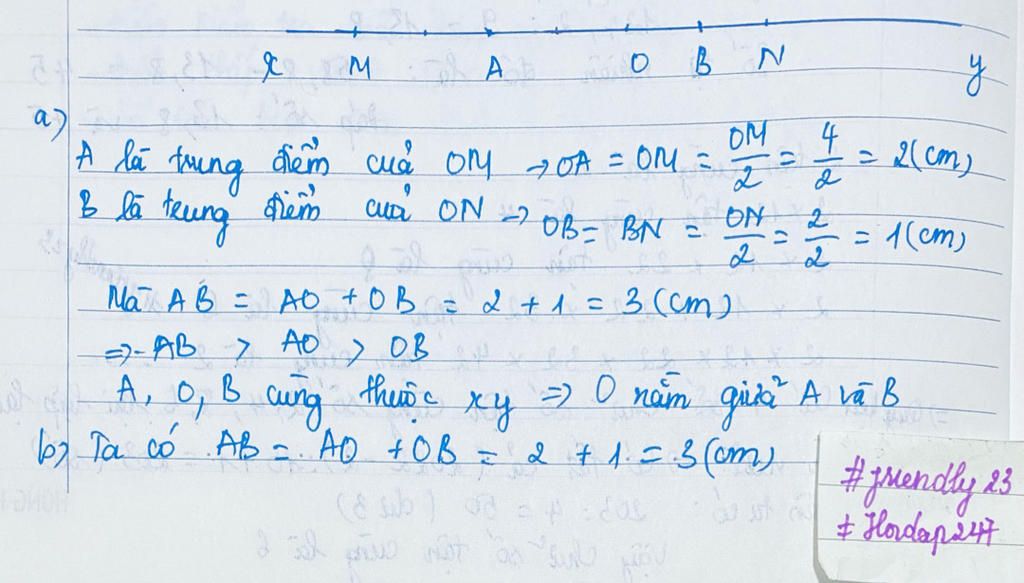 x M A O B N y
a)
A là trung điểm cuả OM → OA = OM = OM/2 = 4/2 = 2(cm)
B là trung điểm cuả ON → OB = BN = ON/2 = 2/2 = 1(cm)
Mà AB = AO + OB = 2 + 1 = 3(cm)
⇒ AB > AO > OB
A, O, B cùng thuộc xy ⇒ O nằm giữa A và B
b) Ta có AB = AO + OB = 2 + 1 = 3(cm)
#friendly23
# Hoidap247